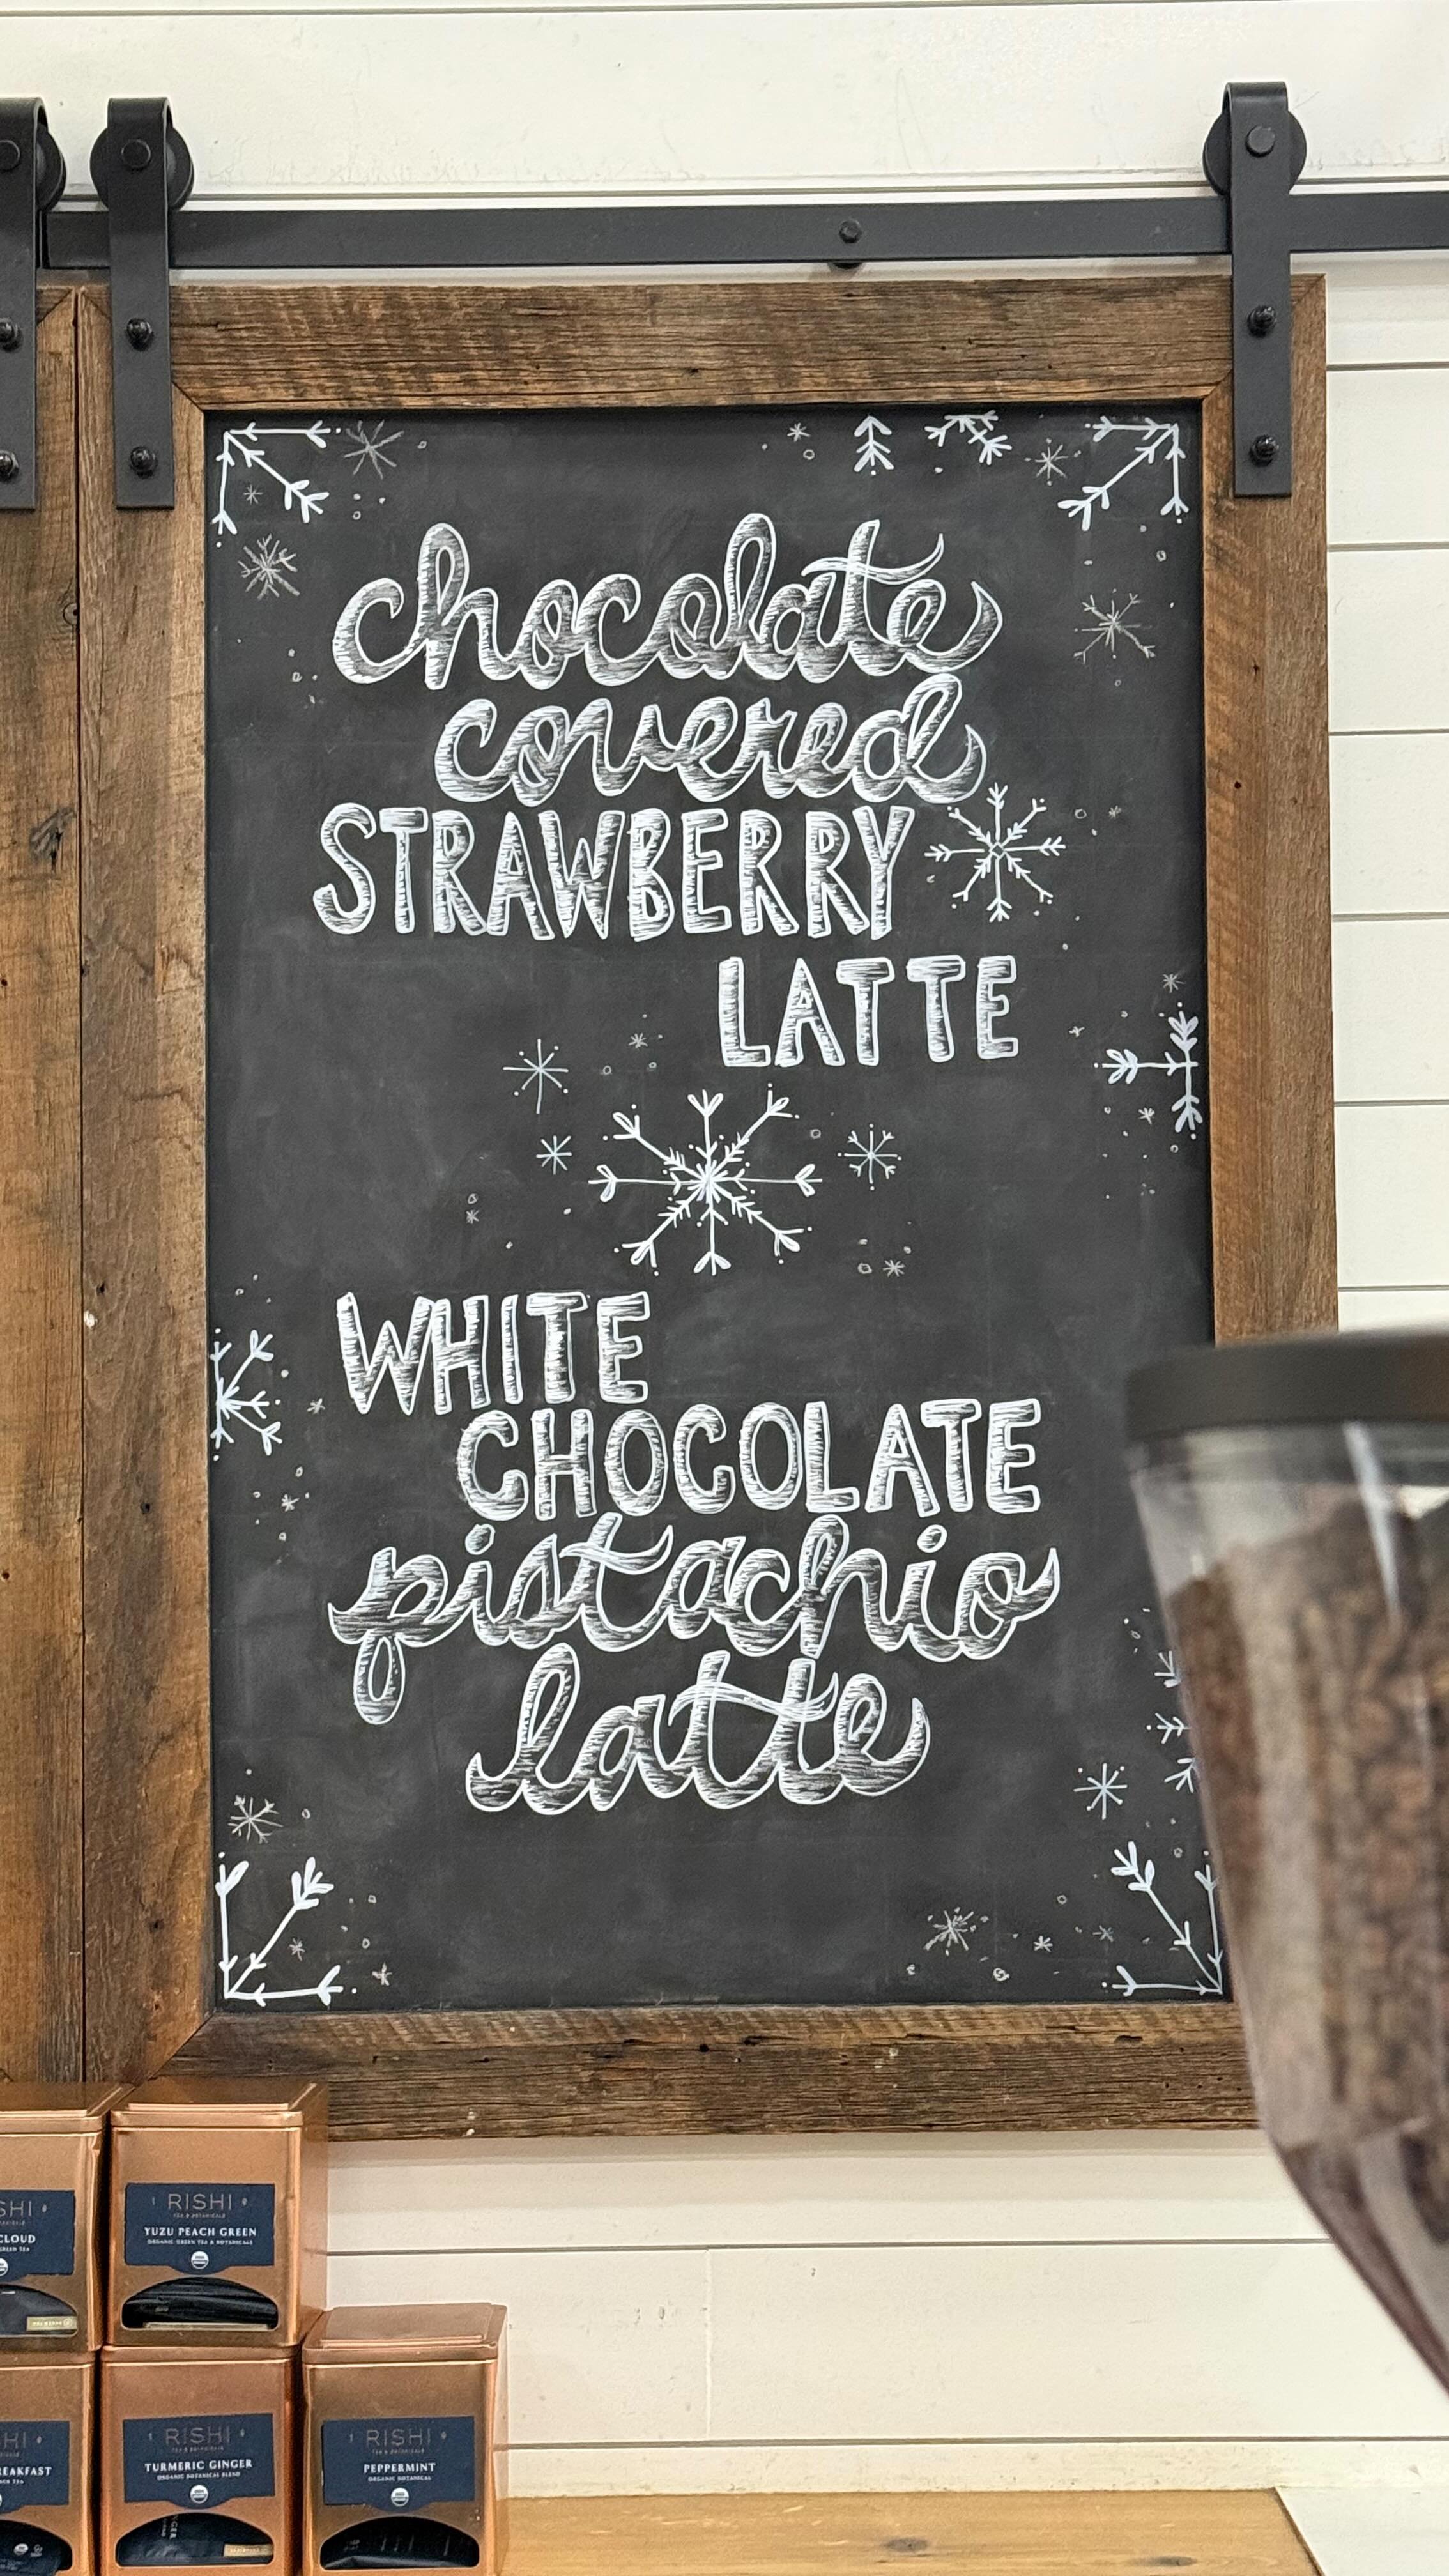 chocolate
covered
STRAWBERRY
LATTE
WHITE
CHOCOLATE
pistachio
latte
CLOUD
RISHI
TEA & BOTANICALS
YUZU PEACH GREEN
ORGANIC GREEN TEA & BOTANICALS
RISHI
TEA & BOTANICALS
TURMERIC GINGER
ORGANIC BOTANICAL BLEND
RISHI
TEA & BOTANICALS
PEPPERMINT
ORGANIC BOTANICAL